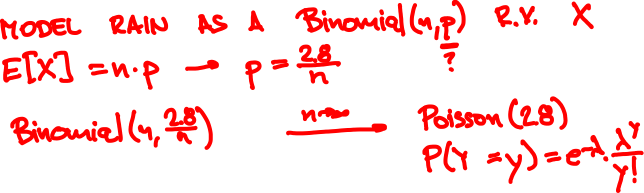 MODEL RAIN AS A Binomial(n, p) R.V. X
?
E[X] = n·p → p = 2.8/n
Binomial(n, 2.8/n) n→∞ Poisson(2.8)
P(Y = y) = e^-λ · λ^y/y!